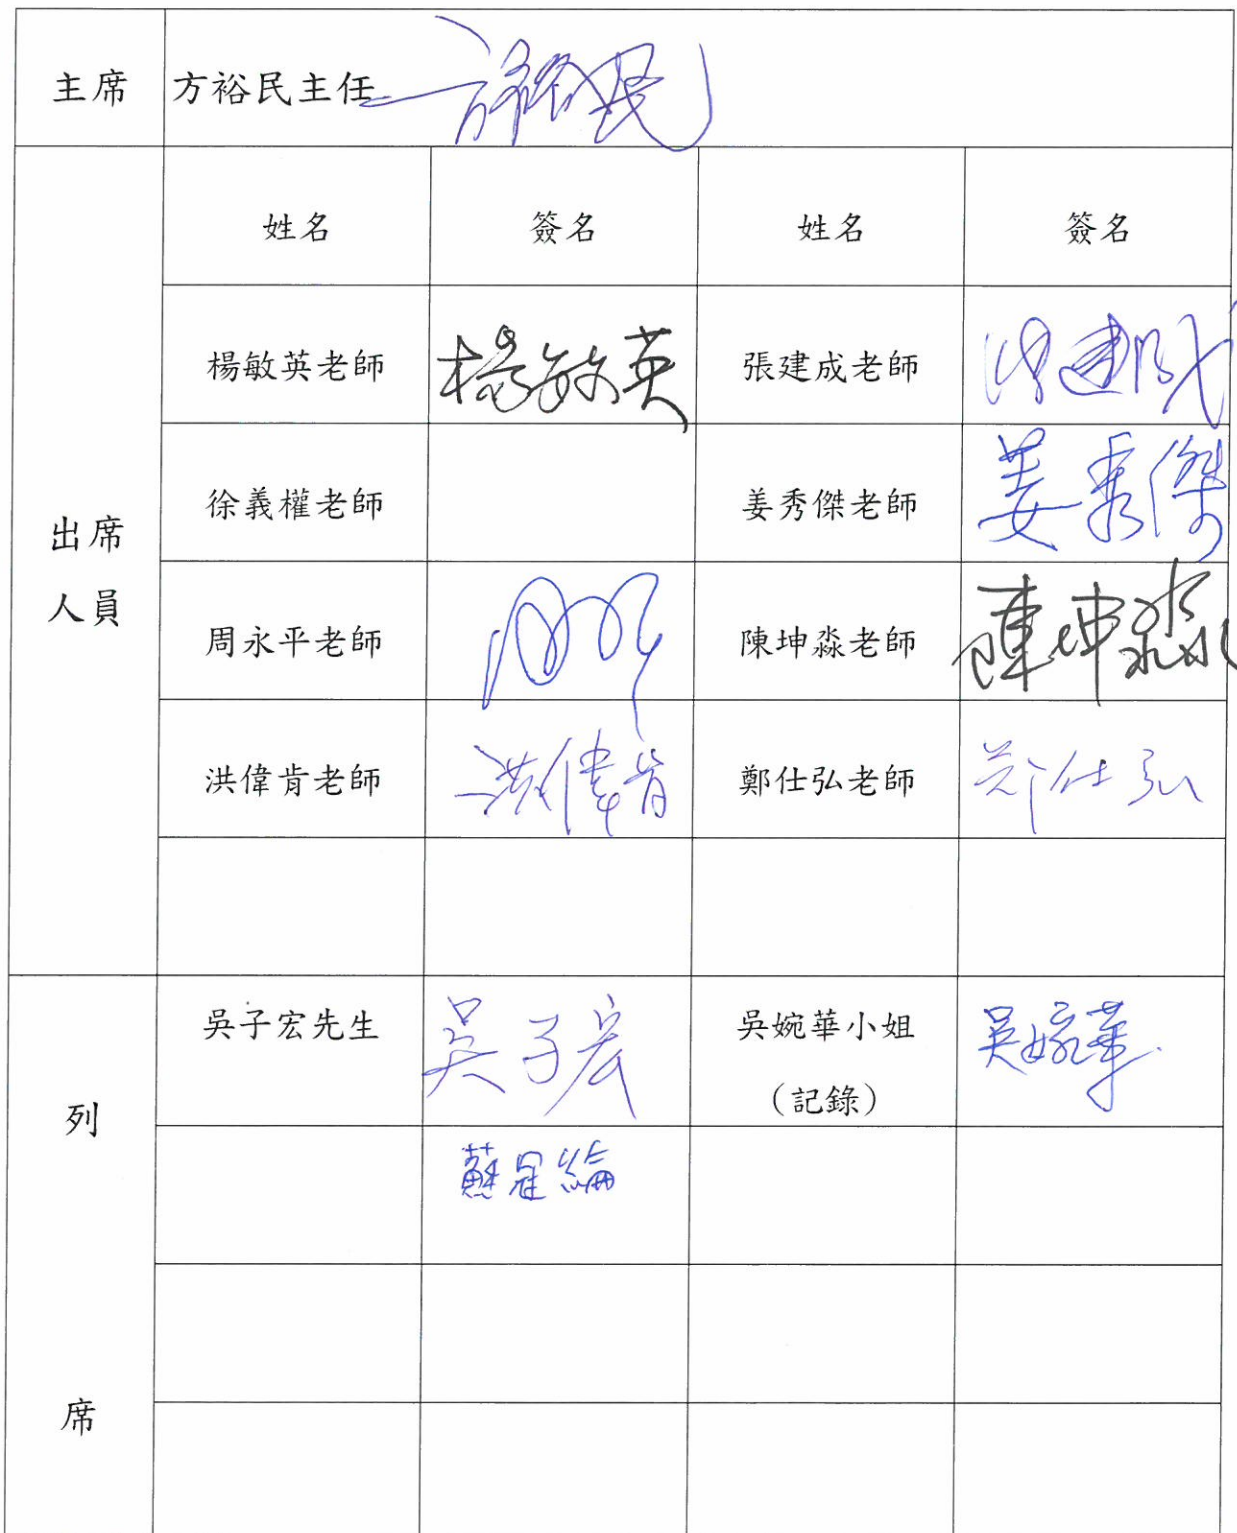 主席 方裕民主任
姓名 簽名 姓名 簽名
楊敏英老師 楊敏英 張建成老師 張建成
徐義權老師 姜秀傑老師 姜秀傑
出席
人員
周永平老師 陳坤淼老師 陳坤淼
洪偉肯老師 洪偉肯 鄭仕弘老師 鄭仕弘
吳子宏先生 吳子宏 吳婉華小姐 吳婉華
(記錄)
列
蘇星綸
席